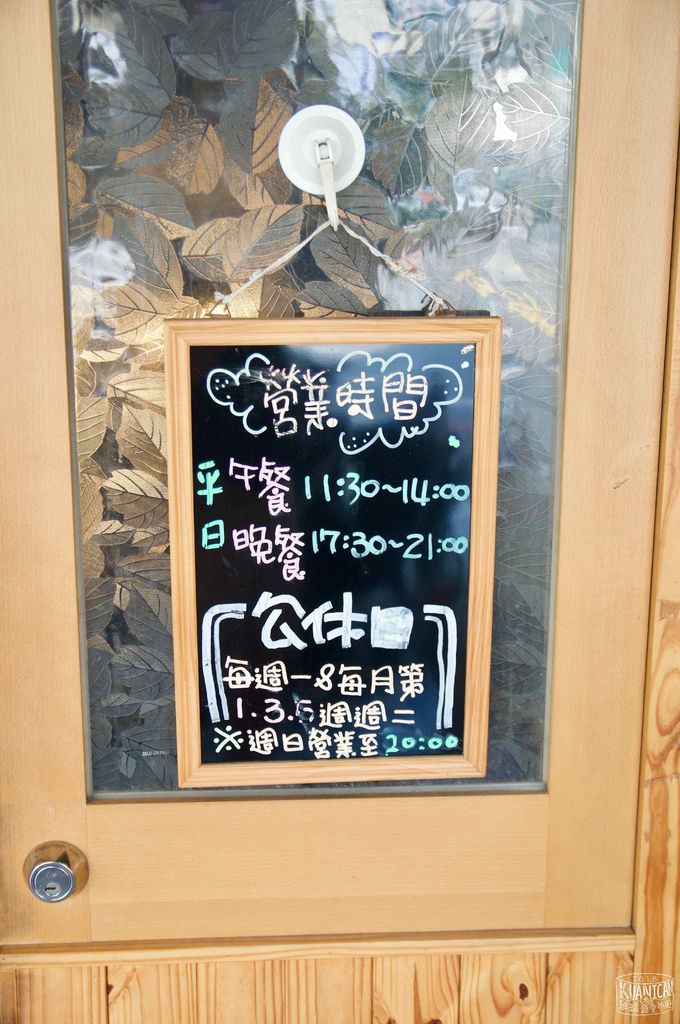 營業時間
平日
午餐 11:30~14:00
晚餐 17:30~21:00
公休日
每週一&每月第
1.3.5週週二
※週日營業至20:00
2018
KUANTCAN